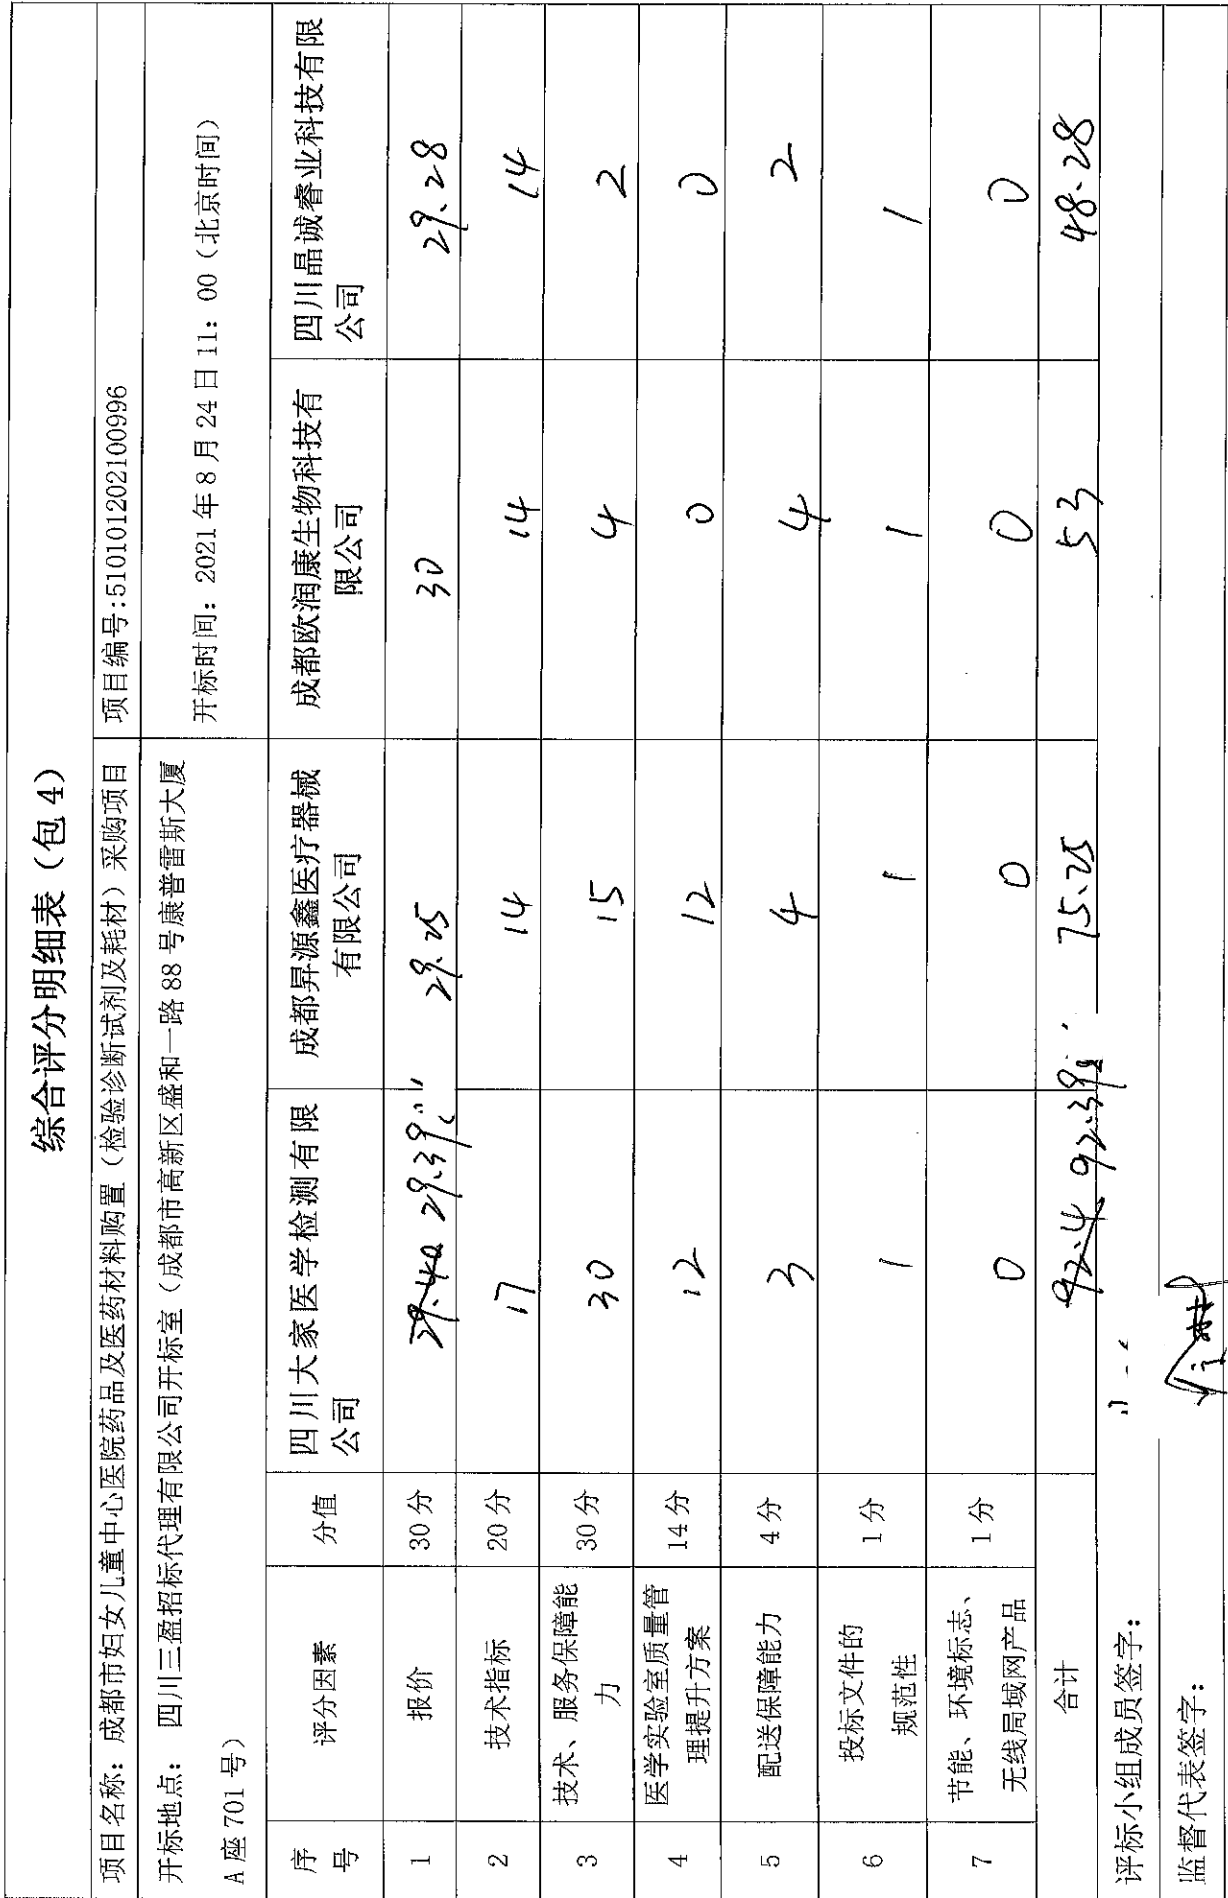 综合评分明细表（包 4）
项目名称：成都市妇女儿童中心医院药品及医药材料购置（检验诊断试剂及耗材）采购项目 项目编号:510101202100996
开标地点： 四川三盈招标代理有限公司开标室（成都市高新区盛和一路 88 号康普雷斯大厦
A 座 701 号） 开标时间：2021 年 8 月 24 日 11：00（北京时间）
序号 评分因素 分值 四川大家医学检测有限公司 成都昇源鑫医疗器械有限公司 成都欧润康生物科技有限公司 四川晶诚睿业科技有限公司
1 报价 30 分 29.40 29.39 29.25 30 29.28
2 技术指标 20 分 17 14 14 14
3 技术、服务保障能力 30 分 30 15 4 2
4 医学实验室质量管理提升方案 14 分 12 12 0 0
5 配送保障能力 4 分 3 4 4 2
6 投标文件的规范性 1 分 1 1 1 1
7 节能、环境标志、无线局域网产品 1 分 0 0 0 0
合计 92.4 92.39 75.25 53 48.28
评标小组成员签字：
监督代表签字：